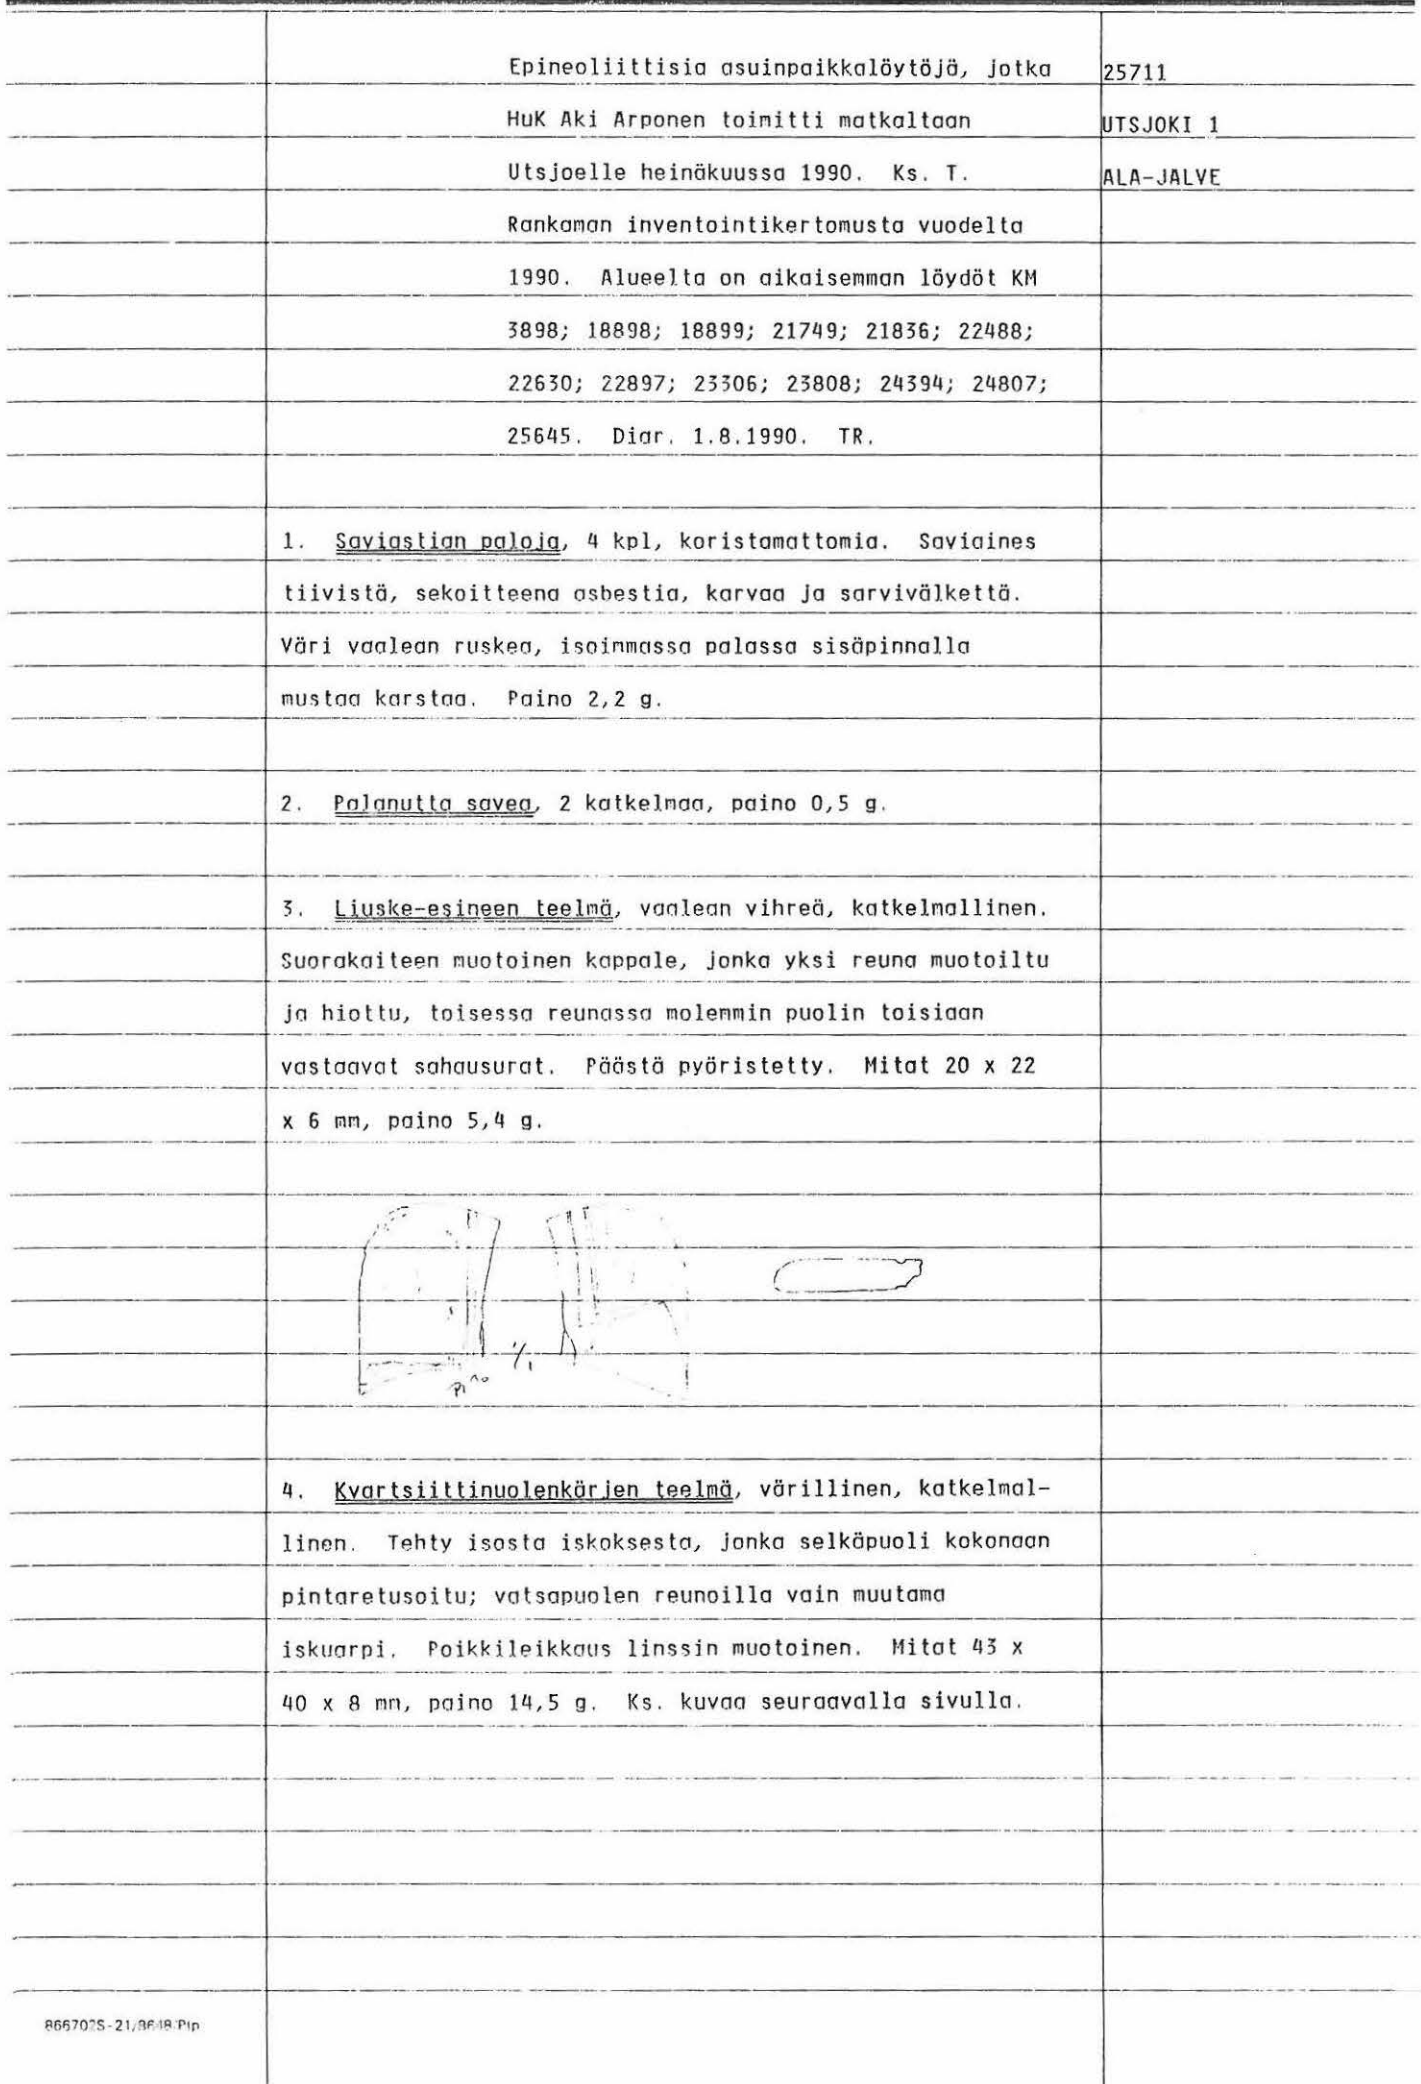 Epineoliittisia asuinpaikkalöytöjä, jotka 25711
HuK Aki Arponen toimitti matkaltaan UTSJOKI 1
Utsjoelle heinäkuussa 1990. Ks. T. ALA-JALVE
Rankaman inventointikertomusta vuodelta
1990. Alueelta on aikaisemman löydöt KM
3898; 18898; 18899; 21749; 21836; 22488;
22630; 22897; 23306; 23808; 24394; 24807;
25645. Diar. 1.8.1990. TR.
1. Saviastian paloja, 4 kpl, koristamattomia. Saviaines
tiivistä, sekoitteena asbestia, karvaa ja sarvivälkettä.
Väri vaalean ruskea, isoimmassa palassa sisäpinnalla
mustaa karstaa. Paino 2,2 g.
2. Palanutta savea, 2 katkelmaa, paino 0,5 g.
3. Liuske-esineen teelmä, vaalean vihreä, katkelmallinen.
Suorakaiteen muotoinen kappale, jonka yksi reuna muotoiltu
ja hiottu, toisessa reunassa molemmin puolin toisiaan
vastaavat sahausurat. Päästä pyöristetty. Mitat 20 x 22
x 6 mm, paino 5,4 g.
1/1
4. Kvartsiittinuolenkärjen teelmä, värillinen, katkelmal-
linen. Tehty isosta iskoksesta, jonka selkäpuoli kokonaan
pintaretusoitu; vatsapuolen reunoilla vain muutama
iskuarpi. Poikkileikkaus linssin muotoinen. Mitat 43 x
40 x 8 mm, paino 14,5 g. Ks. kuvaa seuraavalla sivulla.